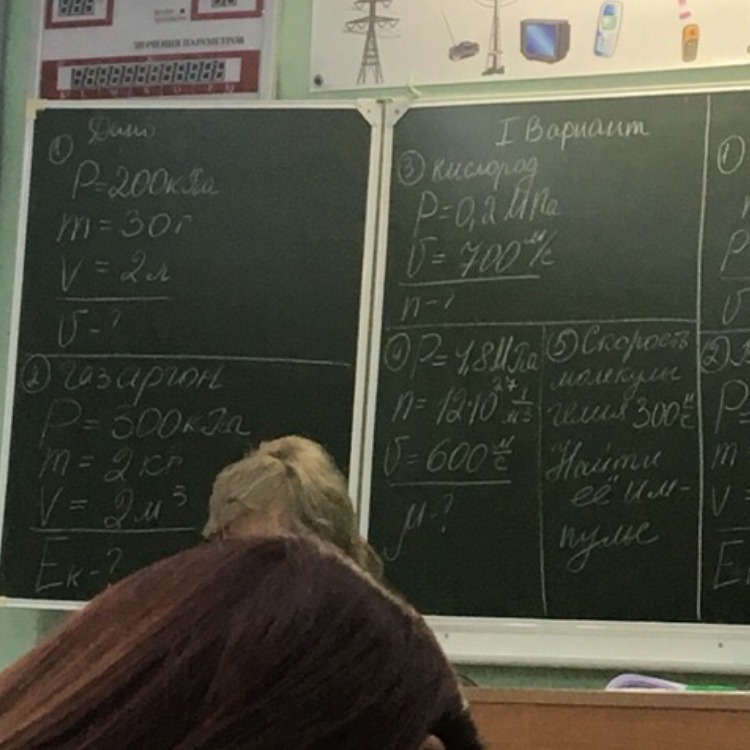 ЗНАЧЕНИЯ ПАРАМЕТРОВ
Дано
①
P=200кПа
m=30г
V=2л
υ-?
② Газ аргон
P=300кПа
m=2кг
V=2м³
Eк-?
I Вариант
③ кислород
P=0,2МПа
υ=700м/с
n-?
④ P=1,8МПа
n=12·10²⁷ 1/м³
υ=600 м/с
μ-?
⑤ Скорость
молекулы
гелия 300 м/с
Найти
её им-
пульс
①
P
υ
②
P=
m
V=
E